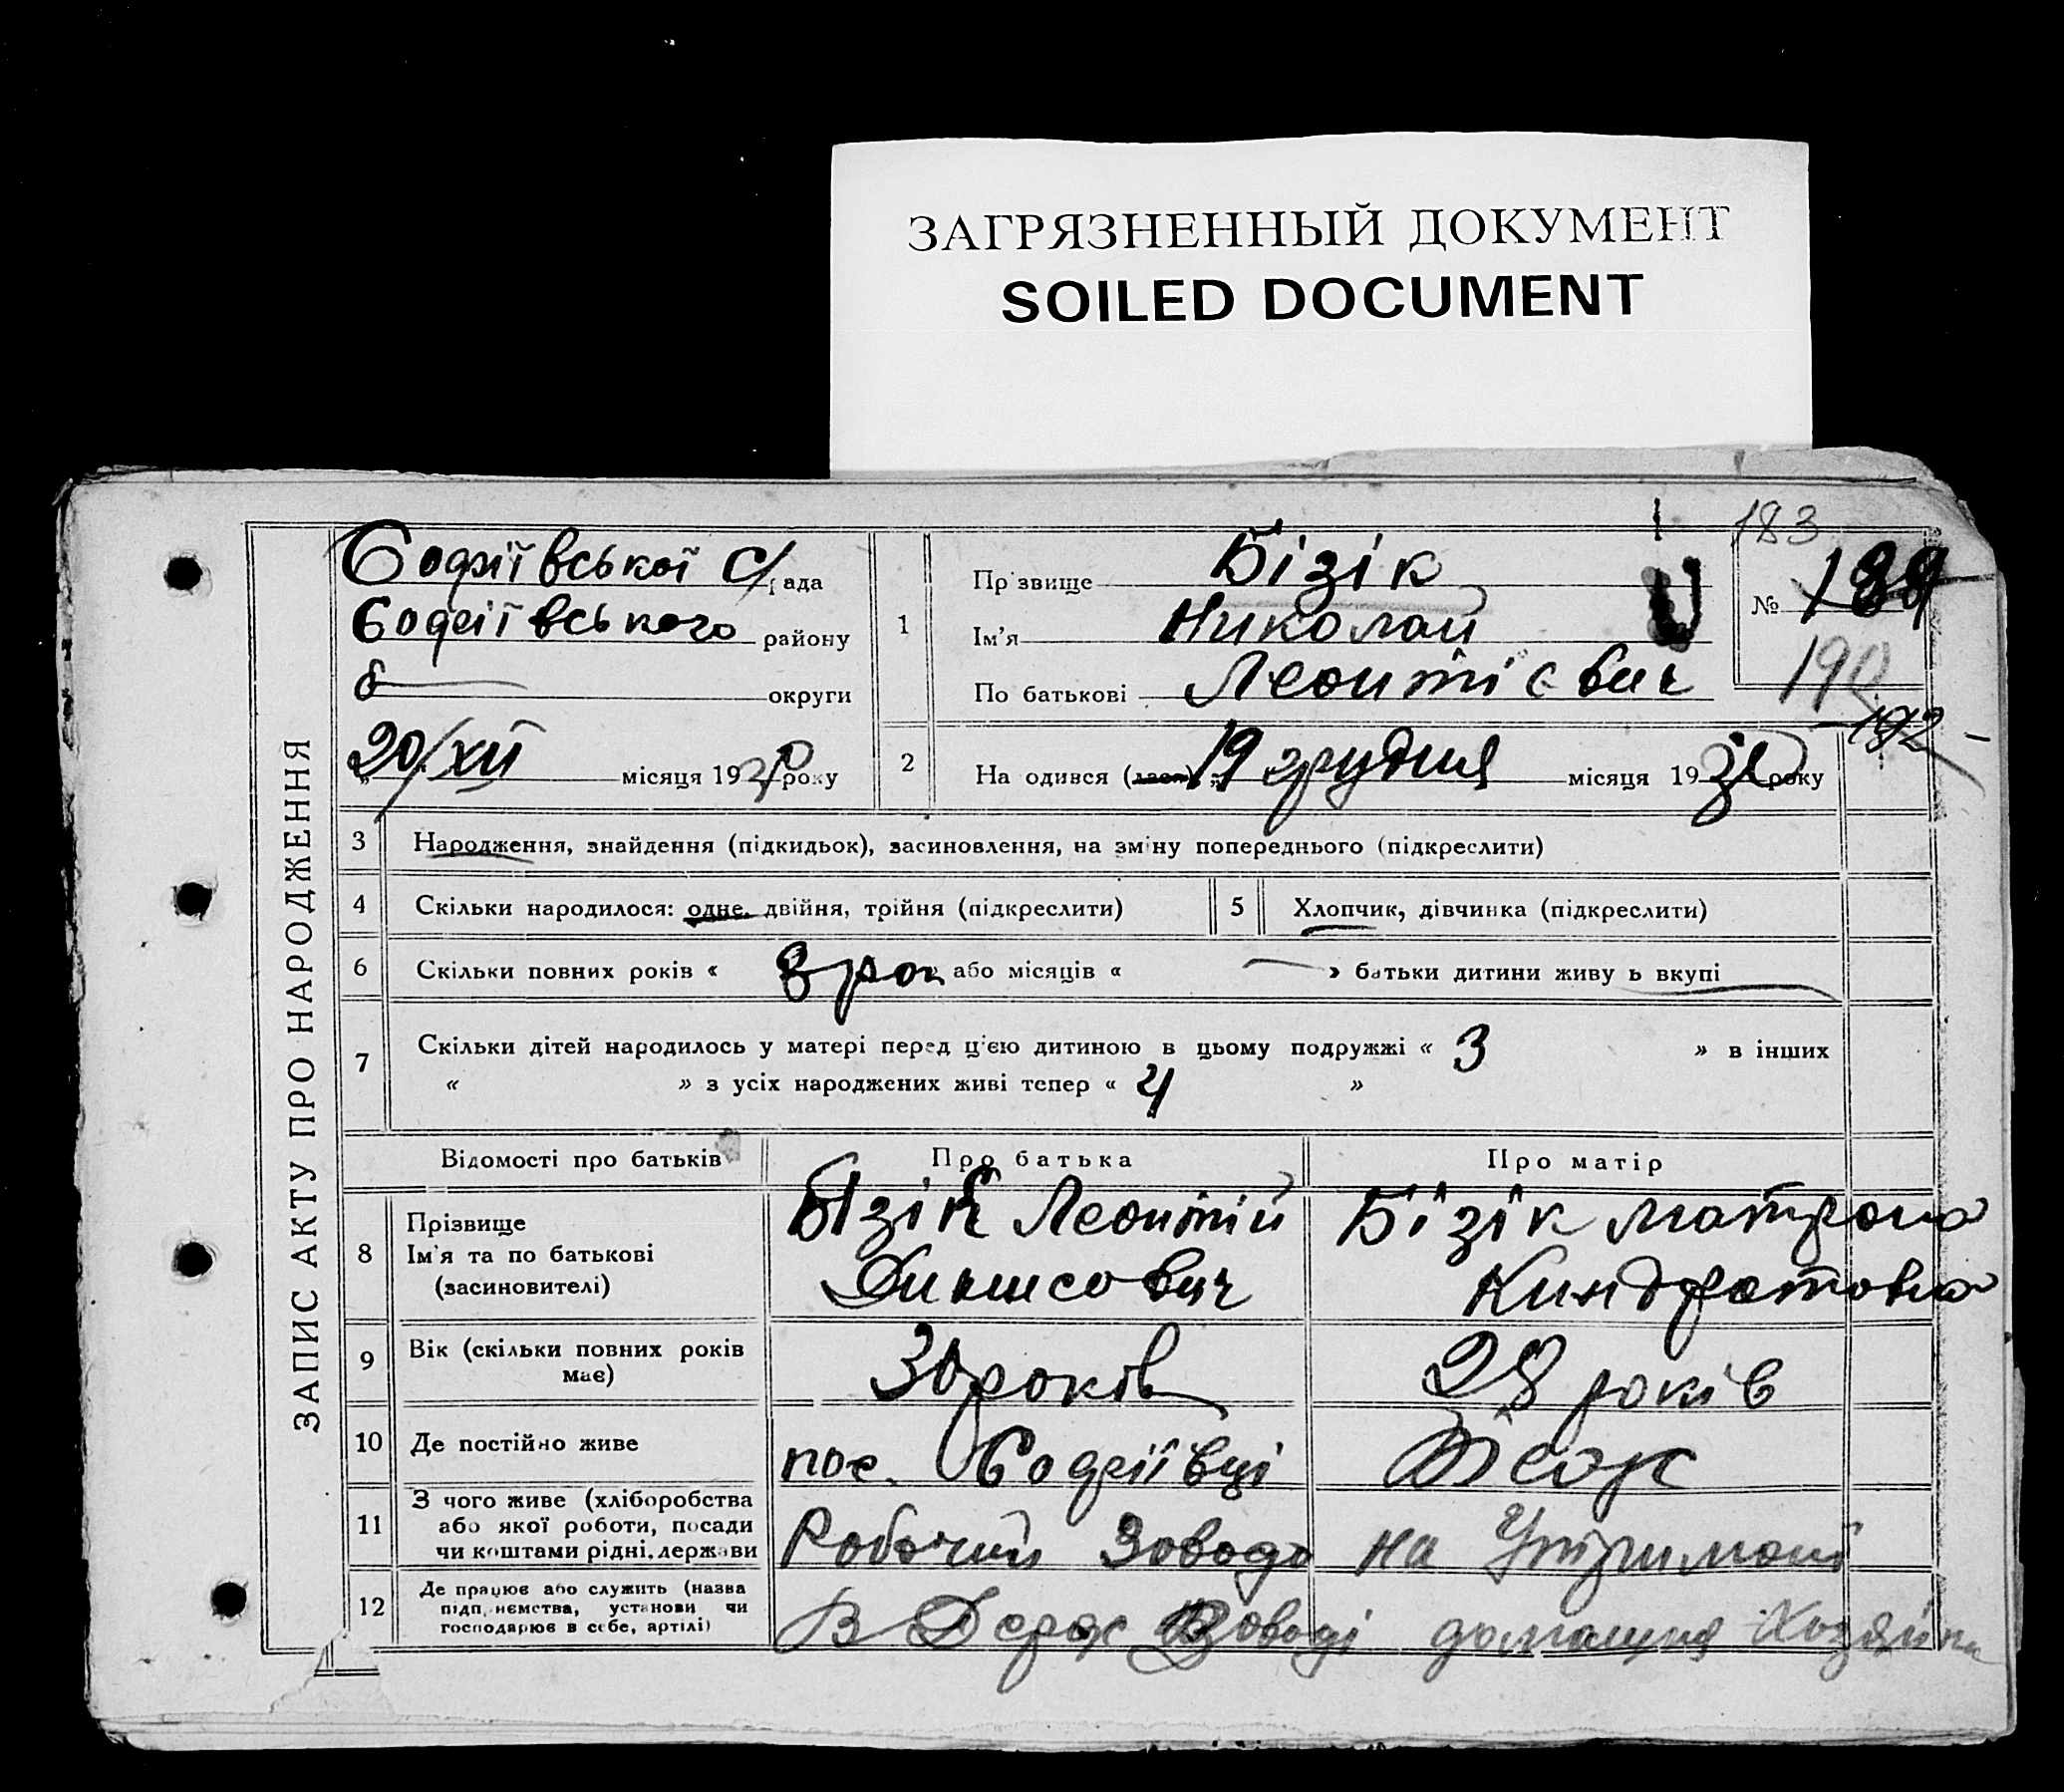 ЗАГРЯЗНЕННЫЙ ДОКУМЕНТ
SOILED DOCUMENT
ЗАПИС АКТУ ПРО НАРОДЖЕННЯ
Софіївської С/рада
Софіївського району
округи
20/XII місяця 19 року
1
Прізвище Бізік
Ім'я Николай
По батькові Леонтієвич
183
№ 189
190
192
2 На одився 19 грудня місяця 19 року
3 Народження, знайдення (підкидьок), засиновлення, на зміну попереднього (підкреслити)
4 Скільки народилося: одне, двійня, трійня (підкреслити)
5 Хлопчик, дівчинка (підкреслити)
6 Скільки повних років « 8 рок або місяців « » батьки дитини живуть вкупі
7 Скільки дітей народилось у матері перед ц'єю дитиною в цьому подружжі « 3 » в інших
« » з усіх народжених живі тепер « 4 »
Відомості про батьків Про батька Про матір
8 Прізвище Ім'я та по батькові (засиновителі)
Бізік Леонтій
Бізік Матрона
Киндратовна
9 Вік (скільки повних років має)
30 років
28 років
10 Де постійно живе
пос. Софіївці
11 З чого живе (хліборобства або якої роботи, посади чи коштами рідні, держави
Робочий Заводо
на Утримані
12 Де працює або служить (назва підприємства, установи чи господарює в себе, артілі)
В Держ Заводі
домашня Хозяйка